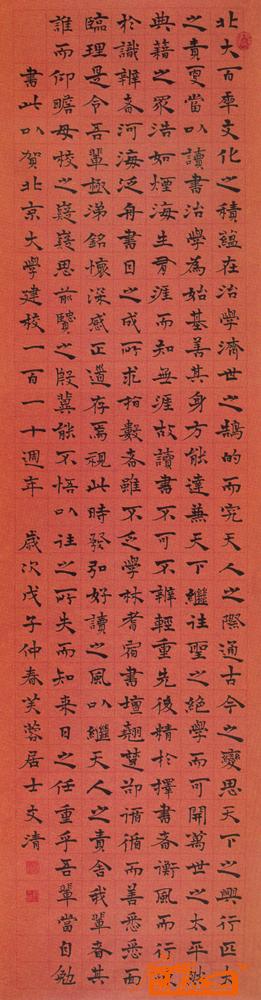 北大百年文化之積蘊在治學濟世之鵠的而究天人之際通古今之變思天下之興行匹夫
之責更當以讀書治學為始基善其身方能達兼天下繼往聖之絕學而可開萬世之太平然
典籍之眾浩如煙海生有涯而知無涯故讀書不可不辨輕重先後精於擇書者衡風而行
於識辨者河海泛舟書目之成所求相數者雖不乏學林耆宿書壇翹楚卻循循而善悉悉而
臨理是令吾輩極涕銘懷深感正道存焉視此時發弘好讀之風以繼天人之責舍我輩者其
誰而仰瞻母校之嶷嶷思前驥之殷冀能不悟以往之所失而知來日之任重乎吾輩當自勉
書此以賀北京大學建校一百一十週年 歲次戊子仲春芙蓉居士文清